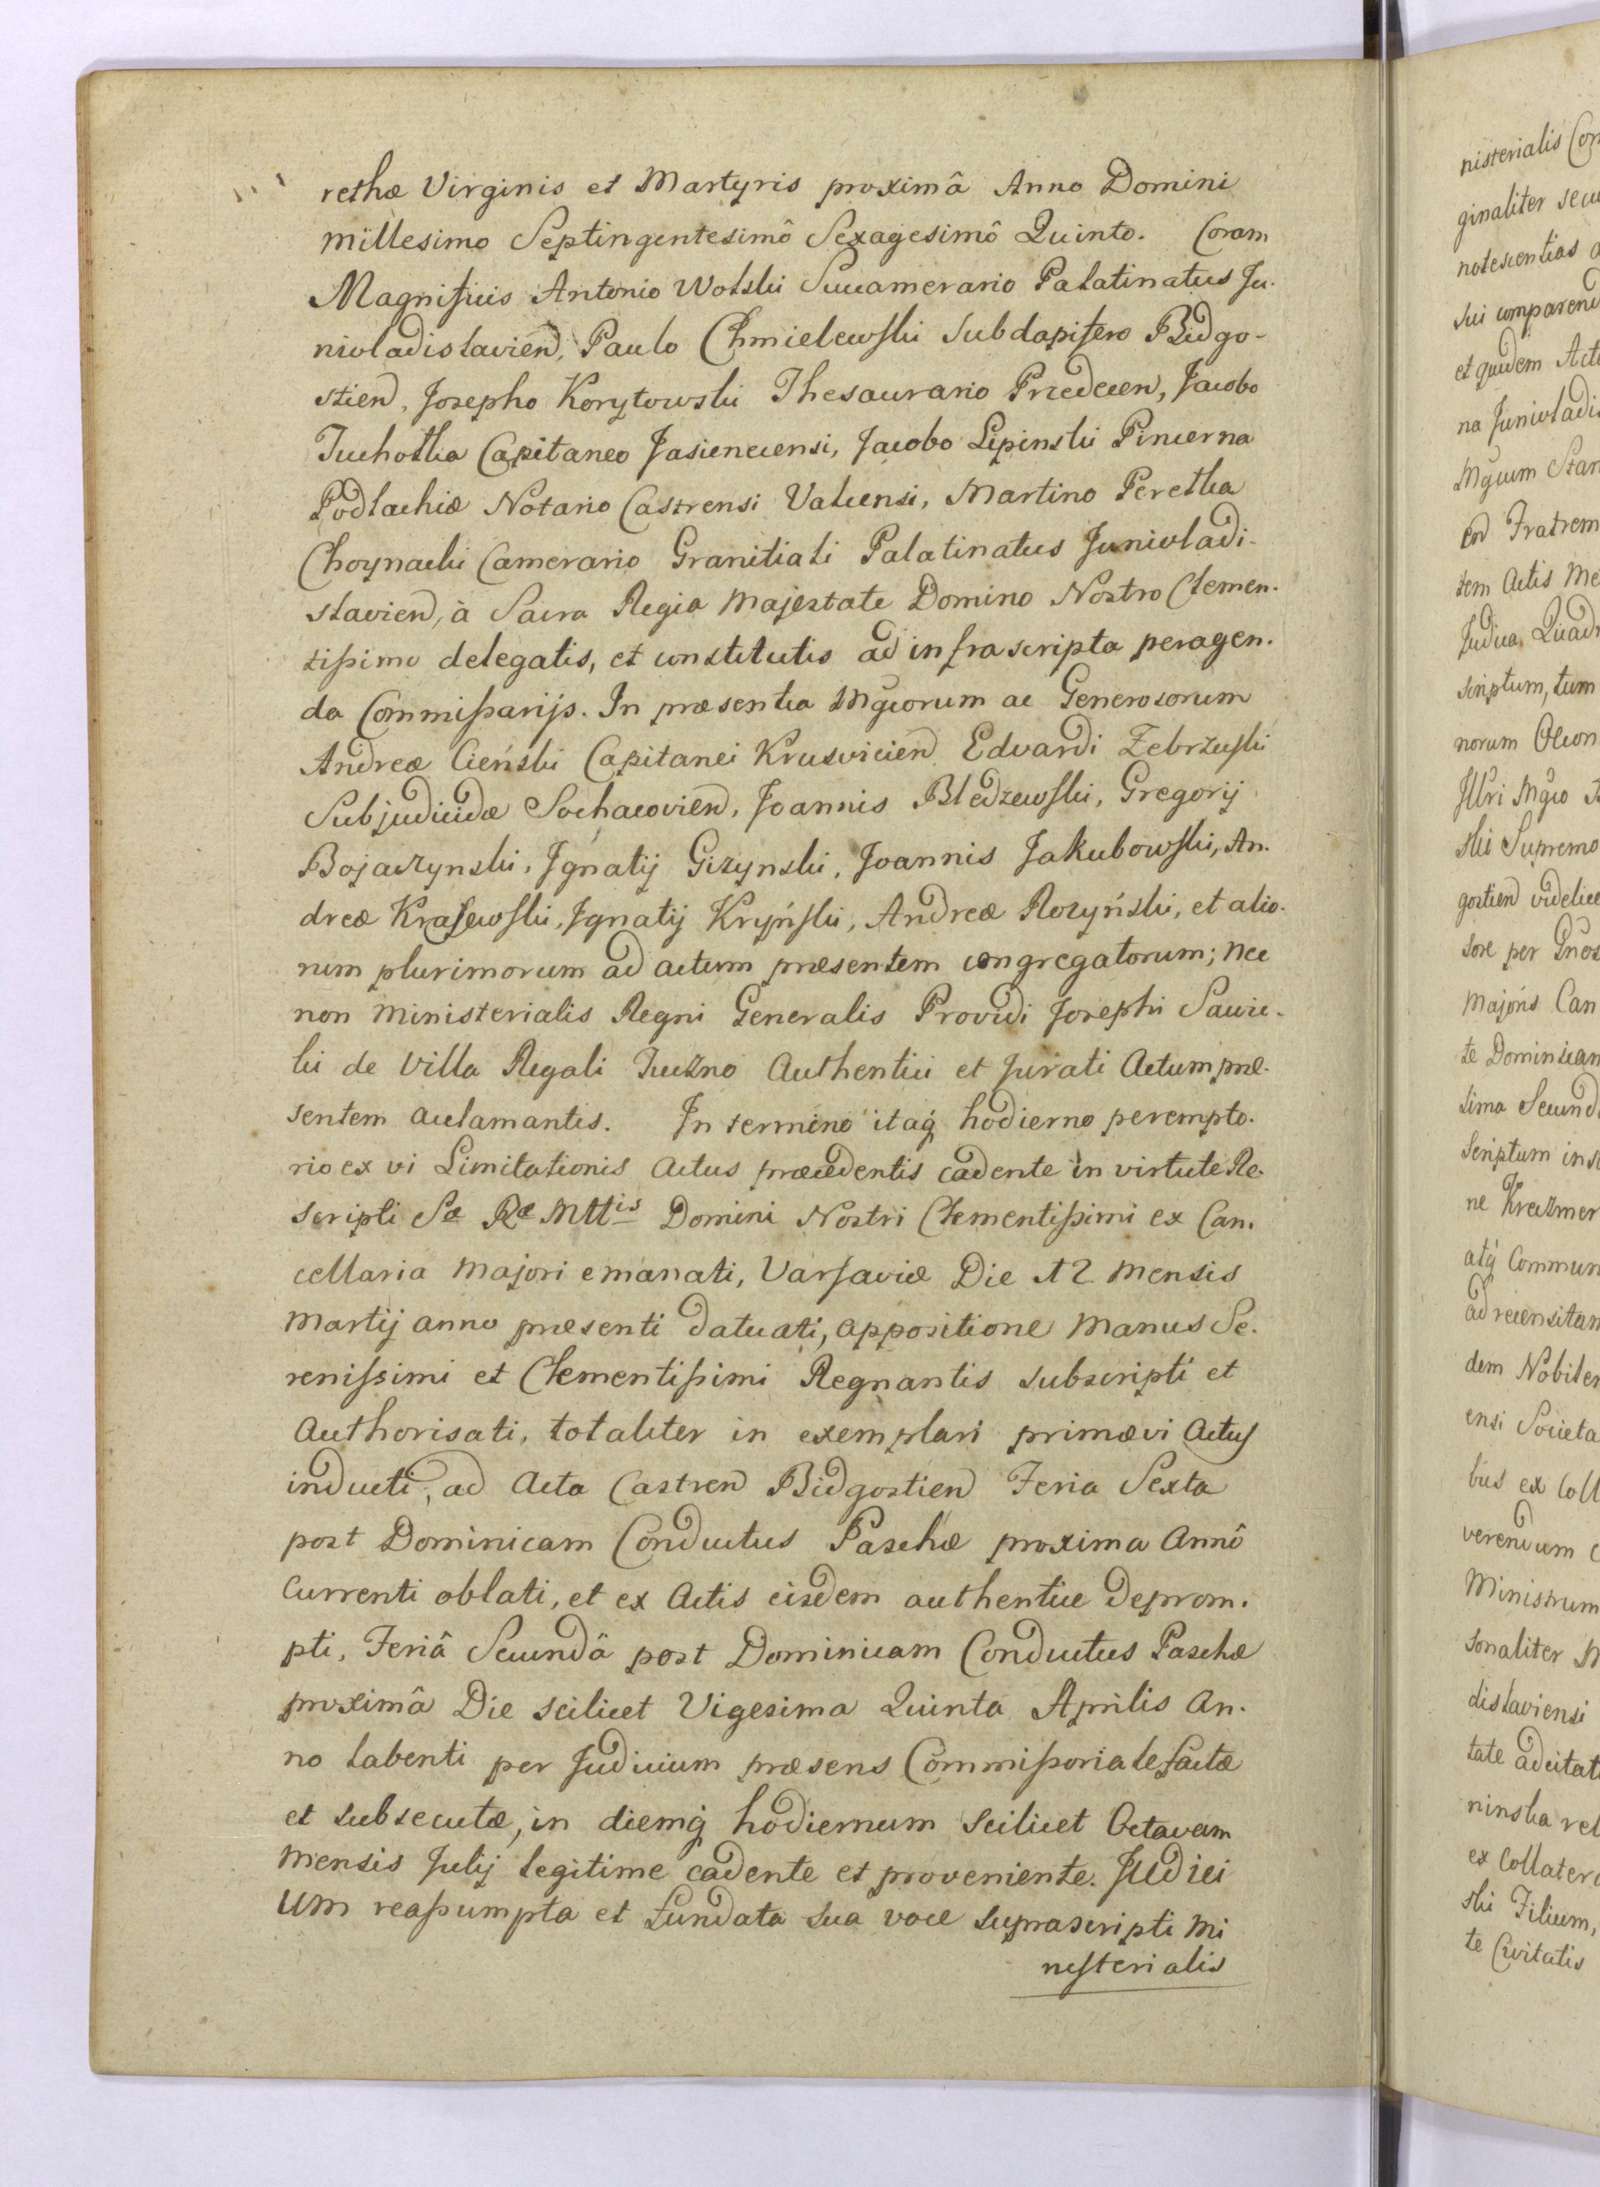 rethæ Virginis et Martyris proximâ Anno Domini
Millesimo Septingentesimô Sexagesimô Quinto. Coram
Magnificis Antonio Wolski Succamerario Palatinatus Ju-
nivladislavien, Paulo Chmielewski Subdapifero Bidgo-
stien, Josepho Korytowski Thesaurario Przedecen, Jacobo
Tuchołka Capitaneo Jasienecensi, Jacobo Lipinski Pincerna
Podlachiæ Notario Castrensi Valcensi, Martino Peretka
Choynacki Camerario Granitiali Palatinatus Junivladi-
slavien, à Sacra Regia Majestate Domino Nostro Clemen-
tissimo delegatis, et constitutis ad infrascripta peragen-
da Commissarijs. In præsentia Mgcorum ac Generosorum
Andreæ Cieński Capitanei Krusvicien Edvardi Zebrzuski
Subjudicidæ Sochacovien, Joannis Bledzewski, Gregorij
Bojaczynski, Jgnatij Gizynski, Joannis Jakubowski, An-
dreæ Krajewski, Jgnatij Kryński, Andreæ Rozyński, et alio-
rum plurimorum ad actum præsentem congregatorum; nec
non Ministerialis Regni Generalis Providi Josephi Sawic-
ki de Villa Regali Tuczno Authentici et Jurati Actum præ-
sentem acclamantis. In termino itaq hodierno perempto-
rio ex vi Limitationis Actus præcedentis cadente in virtute Re-
scripti Sæ Ræ Mttis Domini Nostri Clementissimi ex Can-
cellaria Majori emanati, Varsaviæ Die 12 Mensis
Martij anno præsenti datuati, appositione Manus Se-
renissimi et Clementissimi Regnantis subscripti et
Authorisati, totaliter in exemplari primævi Actus
inducti, ad Acta Castren Bidgostien Feria Sexta
post Dominicam Conductus Paschæ proxima Annô
Currenti oblati, et ex Actis eisdem authentice deprom-
pti, Feriâ Secundâ post Dominicam Conductus Paschæ
proximâ Die scilicet Vigesima Quinta Aprilis An-
no labenti per Judicium præsens Commissoriale factæ
et subsecutæ, in diemq hodiernum scilicet Octavam
Mensis Julij legitime cadente et proveniente. Judici
um reassumpta et fundata sua voce suprascripti Mi
nisterialis
nisterialis Con
ginaliter secu
notescentias
sui comparend
et quidem Act
na Junivladi
Mgcum Stan
en Fratrem
tem Actis Me
Judica Quadr
scriptum, tum
norum Oecon
Jllri Mgco
ski Supremo
gostien videlice
sore per Gnos
Majoris Can
te Dominican
sima Secund
Scriptum ins
ne Kreczmer
atq Commun
ad recensitam
dem Nobiles
ensi Societa
bus ex Coll
verendum
Ministrum
sonaliter
dislaviensi
tate adcitat
ninska rel
ex Collater
ski Filium,
te Civitatis